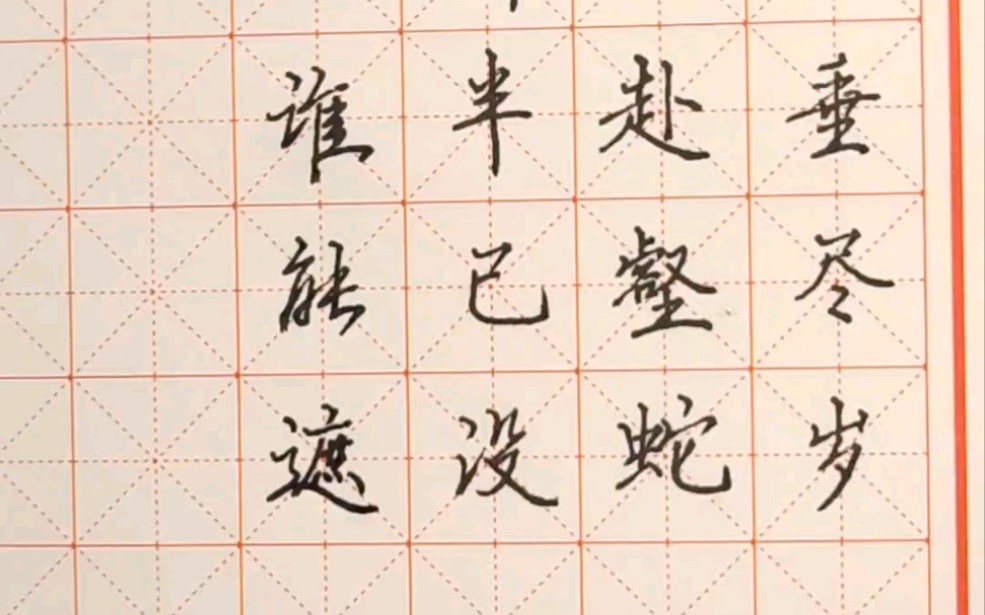 垂尽岁
赴壑蛇
半已没
谁能遮